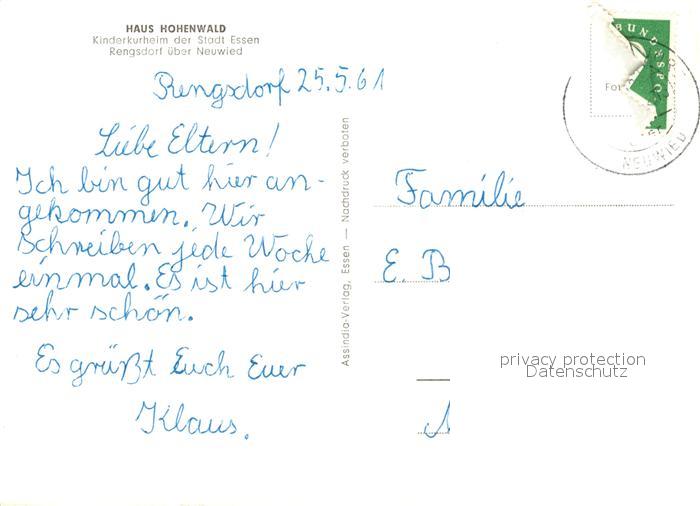 HAUS HOHENWALD
Kinderkurheim der Stadt Essen
Rengsdorf über Neuwied
Rengsdorf 25.5.61
Liebe Eltern!
Ich bin gut hier an-
gekommen. Wir
schreiben jede Woche
einmal. Es ist hier
sehr schön.
Es grüßt Euch Euer
Klaus.
Assindia-Verlag, Essen — Nachdruck verboten
BUNDESPO
For
NEUWIED
Familie
E. B
privacy protection
Datenschutz